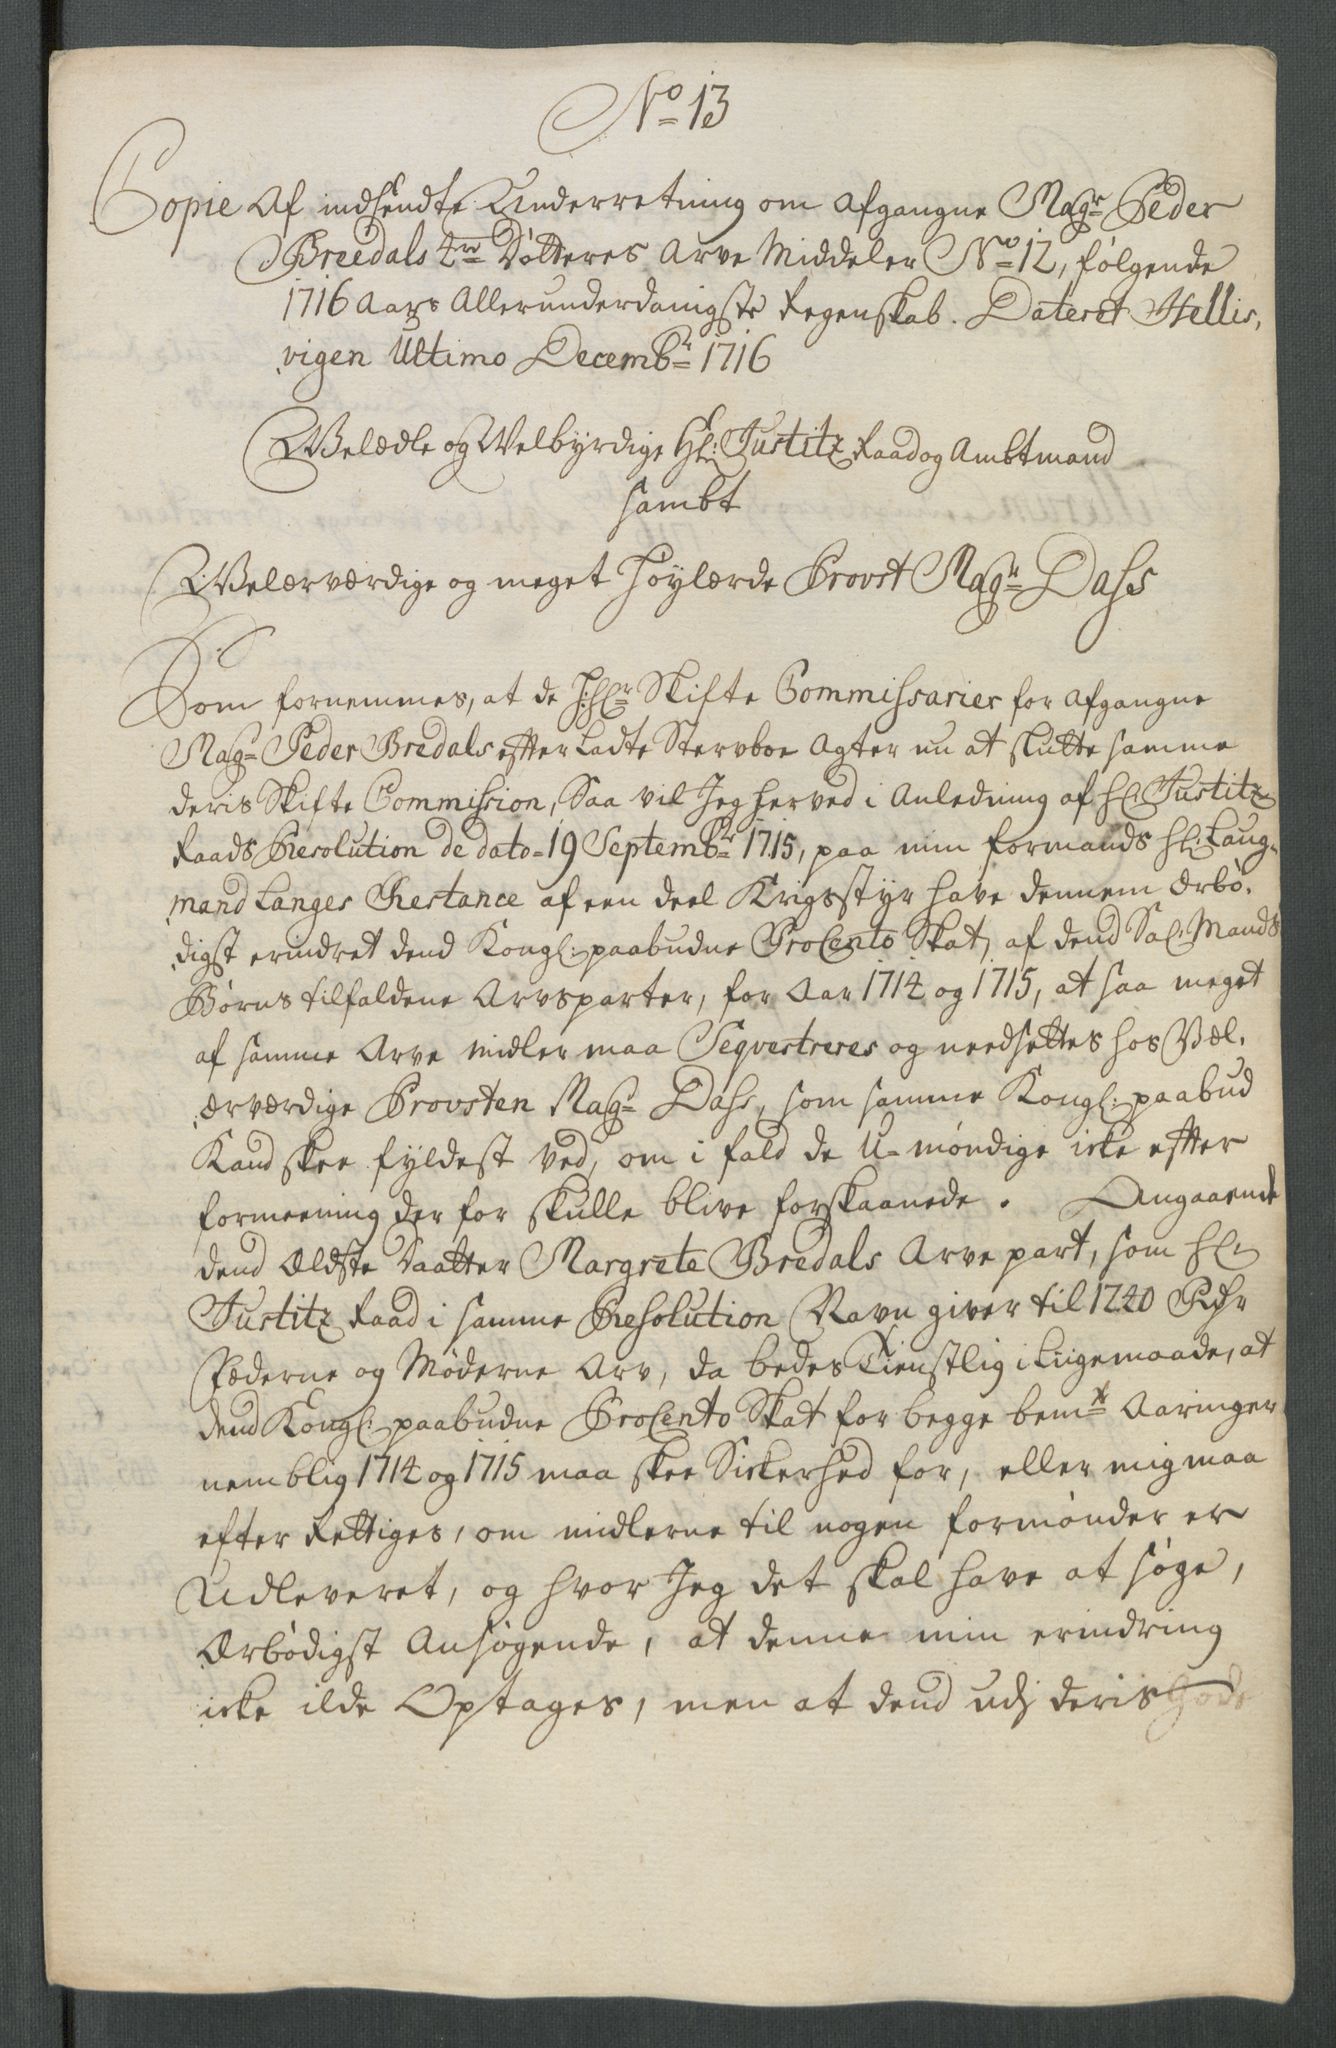 No 13
Copie Af indsendte Underretning om Afgangne Magr Peder
Breedals 4re Døttres Arve Middeler No 12, følgende
1716 Aars Allerunderdanigste Regenskab. Dateret Hellis,
vigen Ultimo Decembr 1716
Welædle og Welbyrdige Hr: Justitz Raad og Ambtmand
sambt
Welærværdige og meget Høylærde Provst Magr Dass
Som fornemmes, at de H:Hr Skifte Commissarier for Afgangne
Magr Peder Bredals effterladte Stervboe Agter nu at slutte samme
deris Skifte Commission, Saa vil Jeg herved i Anledning af Hr: Justitz
Raads Resolution de dato 19 Septembr 1715, paa min formands Hr: Laug-
mand Langes Restance af een deel Krigsstyr have dennem Ærbø,
digst erindret dend Kongl: paabudne ProCento Skat, af dend Sal: Mands
Børns tilfaldene Arvsparter, for Aar 1714 og 1715, at saa meget
af samme Arve midler maa Seqvestreres og needsettes hos Vel,
ærværdige Provsten Magr Dass, som samme Kongl: paabud
Kand skee fyldest ved, om i fald de U-møndige icke effter
formeening der for skulle blive forskaanede. Angaaende
dend Ældste Daatter Margrete Bredals Arve part, som Hr:
Justitz Raad i samme Resolution Navn giver til 1240 Rdr
Fæderne og Møderne Arv, da bedes Tienstlig i Liigemaade, at
dend Kongl: paabudne ProCento Skat for begge bemte Aaringer
nemblig 1714 og 1715 maa skee Sickerhed for, eller mig maa
efter Rettiges, om midlerne til nogen formønder er
Udleveret, og hvor Jeg det skal have at søge,
Ærbødigst Ansøgende, at denne min erindring
icke ilde Optages, men at dend udj deris Gode